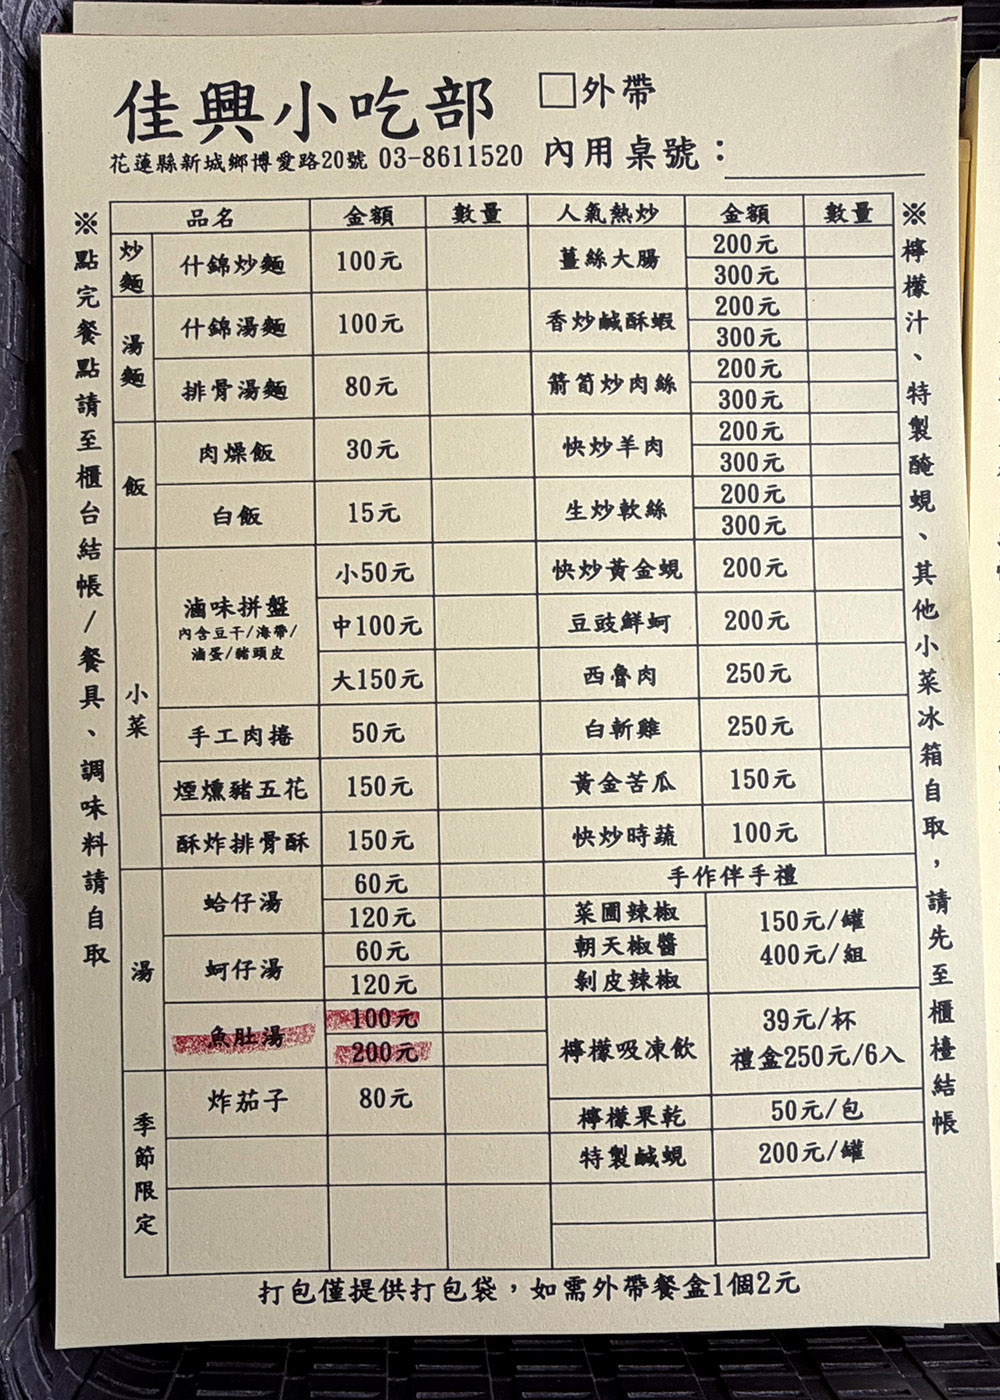 佳興小吃部 □外帶
花蓮縣新城鄉博愛路20號 03-8611520 內用桌號：
※點完餐點請至櫃台結帳/餐具、調味料請自取
品名 金額 數量 人氣熱炒 金額 數量
炒麵 什錦炒麵 100元 薑絲大腸 200元
300元
湯麵 什錦湯麵 100元 香炒鹹酥蝦 200元
300元
排骨湯麵 80元 箭筍炒肉絲 200元
300元
飯 肉燥飯 30元 快炒羊肉 200元
300元
白飯 15元 生炒軟絲 200元
300元
小菜 滷味拼盤 小50元 快炒黃金蜆 200元
內含豆干/海帶/
滷蛋/豬頭皮
中100元 豆豉鮮蚵 200元
大150元 西魯肉 250元
手工肉捲 50元 白斬雞 250元
煙燻豬五花 150元 黃金苦瓜 150元
酥炸排骨酥 150元 快炒時蔬 100元
湯 蛤仔湯 60元 手作伴手禮
120元 菜圃辣椒 150元/罐
蚵仔湯 60元 朝天椒醬 400元/組
120元 剝皮辣椒
魚肚湯 100元
200元 檸檬吸凍飲 39元/杯
禮盒250元/6入
季節限定 炸茄子 80元 檸檬果乾 50元/包
特製鹹蜆 200元/罐
※檸檬汁、特製醃蜆、其他小菜冰箱自取，請先至櫃檯結帳
打包僅提供打包袋，如需外帶餐盒1個2元